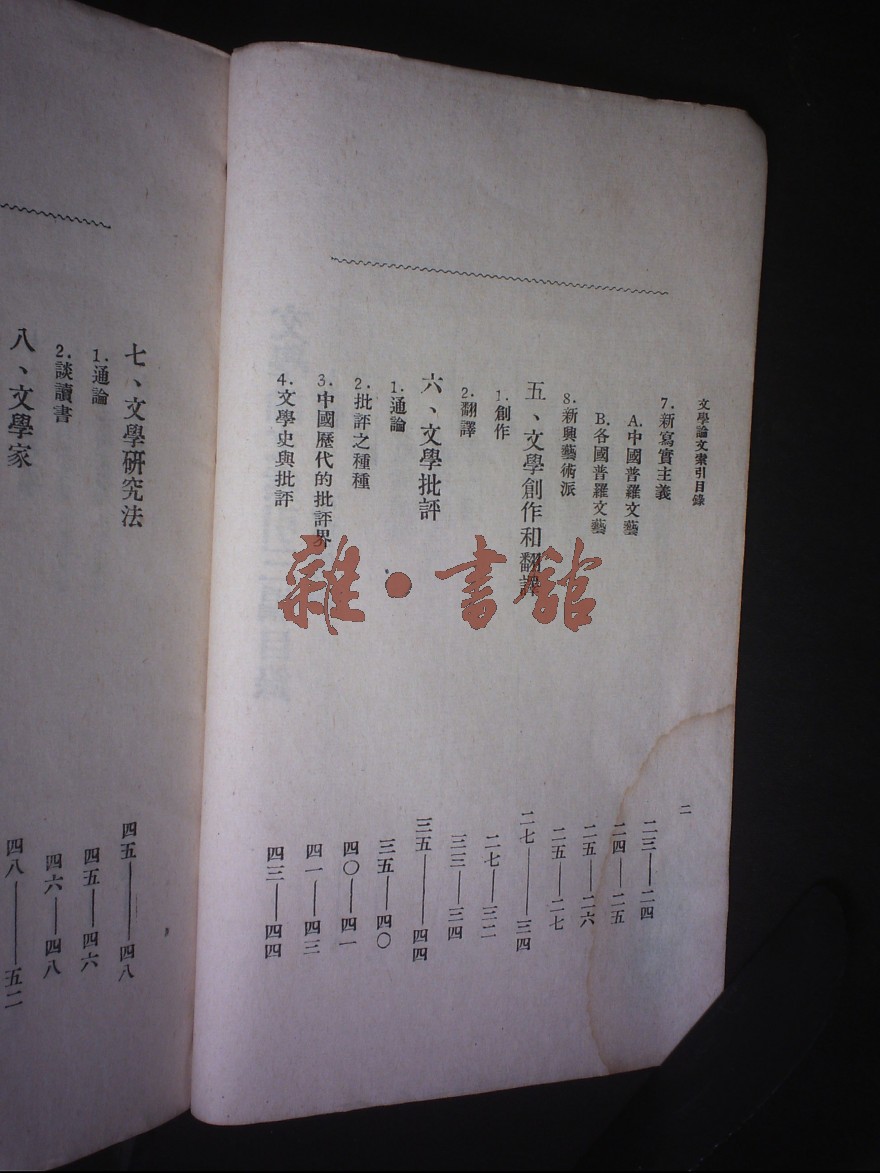 文學論文索引目錄 二
7.新寫實主義 二三——二四
A.中國普羅文藝 二四——二五
B.各國普羅文藝 二五——二六
8.新興藝術派 二五——二七
五、文學創作和翻譯 二七——三四
1.創作 二七——三二
2.翻譯 三三——三四
六、文學批評 三五——四四
1.通論 三五——四〇
2.批評之種種 四〇——四一
3.中國歷代的批評界 四一——四三
4.文學史與批評 四三——四四
七、文學研究法 四五——四八
1.通論 四五——四六
2.談讀書 四六——四八
八、文學家 四八——五二
雜·書館